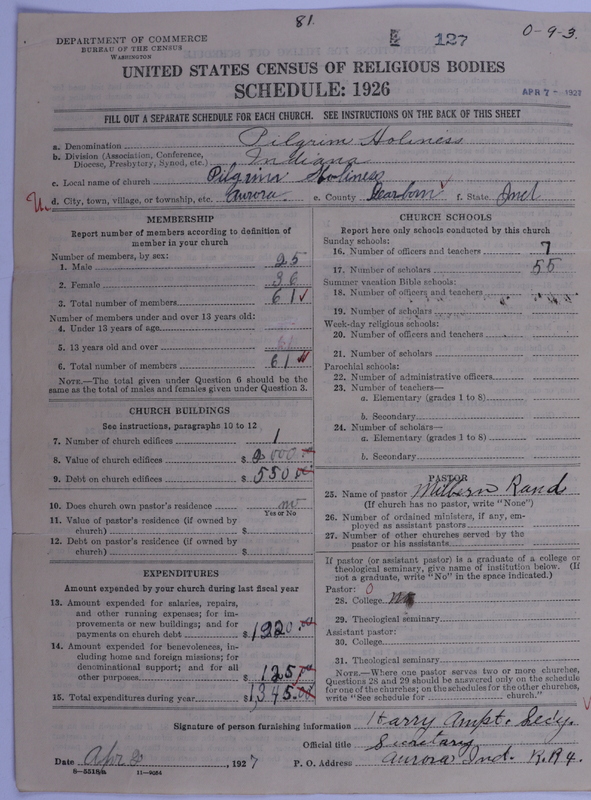 81.
127
0-9-3.
DEPARTMENT OF COMMERCE
BUREAU OF THE CENSUS
WASHINGTON
UNITED STATES CENSUS OF RELIGIOUS BODIES
SCHEDULE: 1926
APR 7 - 1927
FILL OUT A SEPARATE SCHEDULE FOR EACH CHURCH. SEE INSTRUCTIONS ON THE BACK OF THIS SHEET
a. Denomination Pilgrim Holiness
b. Division (Association, Conference, Diocese, Presbytery, Synod, etc.) Indiana
c. Local name of church Pilgrim Holiness
d. City, town, village, or township, etc. Aurora. e. County Dearborn f. State Ind
MEMBERSHIP
Report number of members according to definition of
member in your church
Number of members, by sex:
1. Male 25
2. Female 36
3. Total number of members 61
Number of members under and over 13 years old:
4. Under 13 years of age
5. 13 years old and over 61
6. Total number of members 61
NOTE.—The total given under Question 6 should be the
same as the total of males and females given under Question 3.
CHURCH BUILDINGS
See instructions, paragraphs 10 to 12
7. Number of church edifices 1
8. Value of church edifices $ 000.00
9. Debt on church edifices $ 550.00
10. Does church own pastor's residence no
Yes or No
11. Value of pastor's residence (if owned by
church) $
12. Debt on pastor's residence (if owned by
church) $
EXPENDITURES
Amount expended by your church during last fiscal year
13. Amount expended for salaries, repairs,
and other running expenses; for im-
provements or new buildings; and for
payments on church debt $ 1220.00
14. Amount expended for benevolences, in-
cluding home and foreign missions; for
denominational support; and for all
other purposes $ 125.00
15. Total expenditures during year $ 1,345.00
CHURCH SCHOOLS
Report here only schools conducted by this church
Sunday schools:
16. Number of officers and teachers 7
17. Number of scholars 55
Summer vacation Bible schools:
18. Number of officers and teachers
19. Number of scholars
Week-day religious schools:
20. Number of officers and teachers
21. Number of scholars
Parochial schools:
22. Number of administrative officers
23. Number of teachers—
a. Elementary (grades 1 to 8)
b. Secondary
24. Number of scholars—
a. Elementary (grades 1 to 8)
b. Secondary
PASTOR
25. Name of pastor Milbern Rands
(If church has no pastor, write "None")
26. Number of ordained ministers, if any, em-
ployed as assistant pastors
27. Number of other churches served by the
pastor or his assistants
If pastor (or assistant pastor) is a graduate of a college or
theological seminary, give name of institution below. (If
not a graduate, write "No" in the space indicated.)
Pastor: 0
28. College
29. Theological seminary
Assistant pastor:
30. College
31. Theological seminary
NOTE.—Where one pastor serves two or more churches,
Questions 28 and 29 should be answered only on the schedule
for one of the churches; on the schedules for the other churches,
write "See schedule for church."
Signature of person furnishing information Harry Ampt. Secy.
Official title Secretary
Date Apr 2, 1927 P. O. Address Aurora Ind. R.R 4.
8—5518a 11—9054